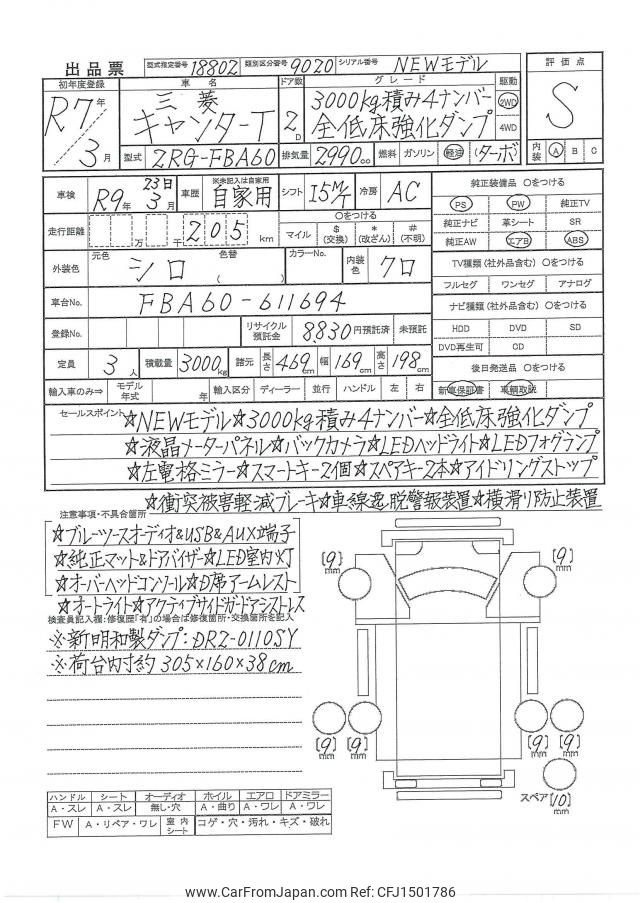 出品票 型式指定番号 18802 類別区分番号 9020 シリアル番号 NEWモデル
評価点 S
初年度登録 車名 ドア数 グレード 駆動
R7年/3月 三菱 キャンターT 2D 3000kg積み4ナンバー 全低床強化ダンプ 2WD 4WD
型式 2RG-FBA60 排気量 2990cc 燃料 ガソリン 軽油 (ターボ)
内装 A B C
車検 R9年 23日 3月 車歴 ※未記入は自家用 自家用 シフト 15M/T 冷房 AC
純正装備品 〇をつける
PS PW 純正TV
純正ナビ 革シート SR
純正AW エアB ABS
走行距離 万 千 205 km
〇をつける
マイル $(交換) *(改ざん) #(不明)
TV種類(社外品含む) 〇をつける
フルセグ ワンセグ アナログ
外装色 元色 シロ 色替 ( ) カラーNo. 内装色 クロ
車台No. FBA60-611694
ナビ種類(社外品含む) 〇をつける
HDD DVD SD
DVD再生可 CD
登録No. リサイクル預託金 8,830円預託済 未預託
定員 3人 積載量 3000kg 諸元 長さ 469cm 幅 169cm 高さ 198cm
後日発送品 〇をつける
新車保証書 車輌取説
輸入車のみ⇒ モデル年式 年 輸入区分 ディーラー 並行 ハンドル 左 右
セールスポイント ☆NEWモデル☆3000kg積み4ナンバー☆全低床強化ダンプ
☆液晶メーターパネル☆バックカメラ☆LEDヘッドライト☆LEDフォグランプ
☆左電格ミラー☆スマートキー2個☆スペアキー2本☆アイドリングストップ
☆衝突被害軽減ブレーキ☆車線逸脱警報装置☆横滑り防止装置
注意事項・不具合箇所
☆ブルーツースオーディオ&USB&AUX端子
☆純正マット&ドアバイザー☆LED室内灯
☆オーバーヘッドコンソール☆D席アームレスト
☆オートライト☆アクティブサイドガードアシストレス
検査員記入欄:修復歴「有」の場合は修復箇所・交換箇所を記入
※新明和製ダンプ:DR2-0110SY
※荷台内寸約305×160×38cm
[9]mm [9]mm
[9]mm [9]mm [9]mm [9]mm
スペア[10]mm
ハンドル シート オーディオ ホイル エアロ ドアミラー
A・スレ A・スレ 無し・穴 A・曲り A・ワレ A・ワレ
FW A・リペア・ワレ 室内シート コゲ・穴・汚れ・キズ・破れ
www.CarFromJapan.com Ref: CFJ1501786